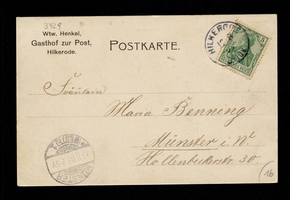 3929
Wtw. Henkel,
Gasthof zur Post,
Hilkerode.
POSTKARTE.
HILKERODE
Fräulein
Maria Benning
Münster i. W.
Hollenbeckerstr. 30.
16